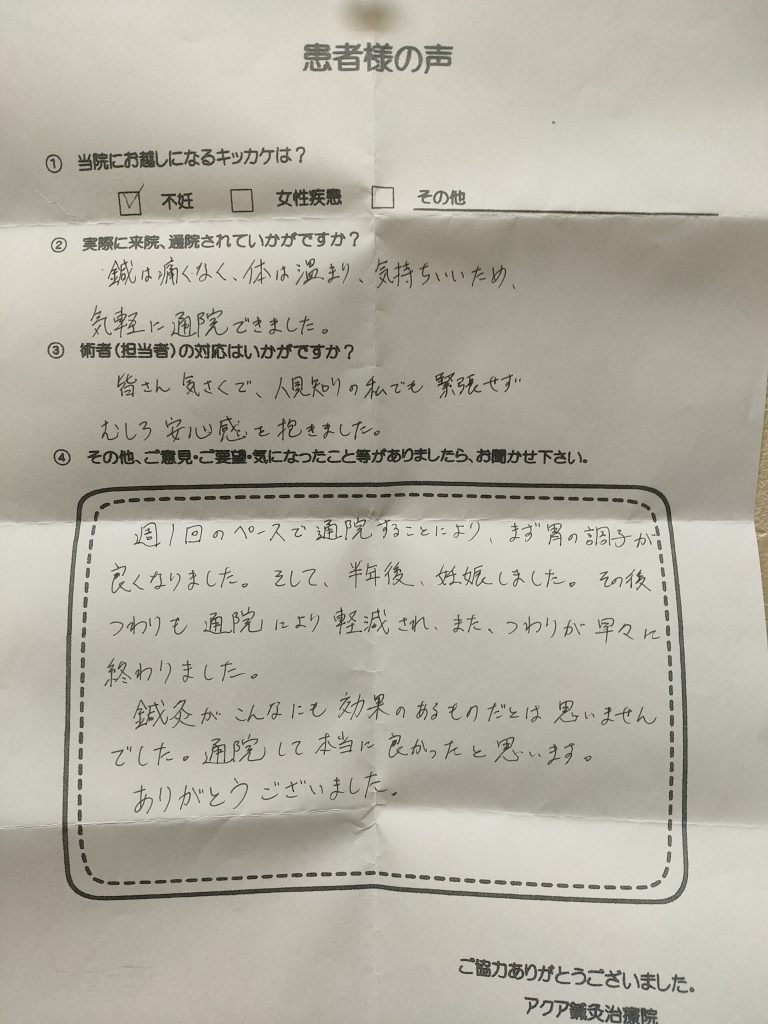 患者様の声
① 当院にお越しになるキッカケは？
☑ 不妊 □ 女性疾患 □ その他
② 実際に来院、通院されていかがですか？
鍼は痛くなく、体は温まり、気持ちいいため、
気軽に通院できました。
③ 術者（担当者）の対応はいかがですか？
皆さん気さくで、人見知りの私でも緊張せず
むしろ安心感を抱きました。
④ その他、ご意見・ご要望・気になったこと等がありましたら、お聞かせ下さい。
週1回のペースで通院することにより、まず胃の調子が
良くなりました。そして、半年後、妊娠しました。その後
つわりも通院により軽減され、また、つわりが早々に
終わりました。
鍼灸がこんなにも効果のあるものだとは思いません
でした。通院して本当に良かったと思います。
ありがとうございました。
ご協力ありがとうございました。
アクア鍼灸治療院